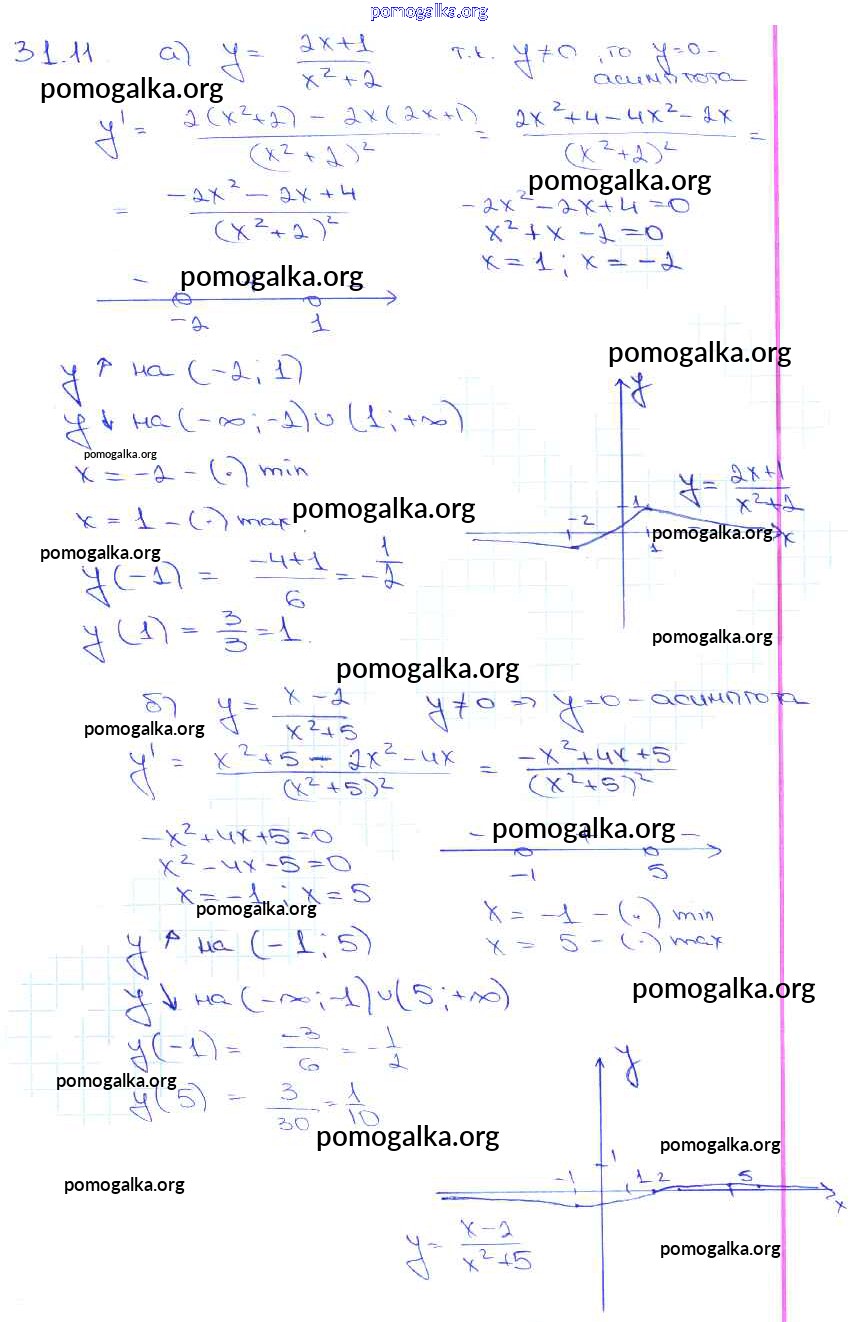 pomogalka.org
31.11 а) y = (2x+1)/(x²+2) т.к. y≠0, то y=0 -
асимптота
pomogalka.org
y' = (2(x²+2) - 2x(2x+1))/(x²+2)² = (2x²+4-4x²-2x)/(x²+2)² =
pomogalka.org
= (-2x²-2x+4)/(x²+2)²
-2x²-2x+4=0
x²+x-2=0
x=1; x=-2
pomogalka.org
-
-2 1
pomogalka.org
y↑ на (-2; 1)
y↓ на (-∞; -2)∪(1; +∞)
pomogalka.org
x = -2 - (·) min
x = 1 - (·) max
pomogalka.org
y
y = (2x+1)/(x²+2)
-2 1
1
x
pomogalka.org
pomogalka.org
y(-1) = (-4+1)/6 = -1/2
y(1) = 3/3 = 1.
pomogalka.org
pomogalka.org
б) y = (x-2)/(x²+5) y≠0 ⇒ y=0 - асимптота
pomogalka.org
y' = (x²+5-2x²-4x)/(x²+5)² = (-x²+4x+5)/(x²+5)²
-x²+4x+5=0
x²-4x-5=0
x=-1; x=5
pomogalka.org
- pomogalka.org -
-1 5
x = -1 - (·) min
x = 5 - (·) max
y↑ на (-1; 5)
y↓ на (-∞; -1)∪(5; +∞)
pomogalka.org
y(-1) = -3/6 = -1/2
pomogalka.org
y(5) = 3/30 = 1/10
pomogalka.org
pomogalka.org
y
1
pomogalka.org
-1 1 2 5
x
y = (x-2)/(x²+5)
pomogalka.org